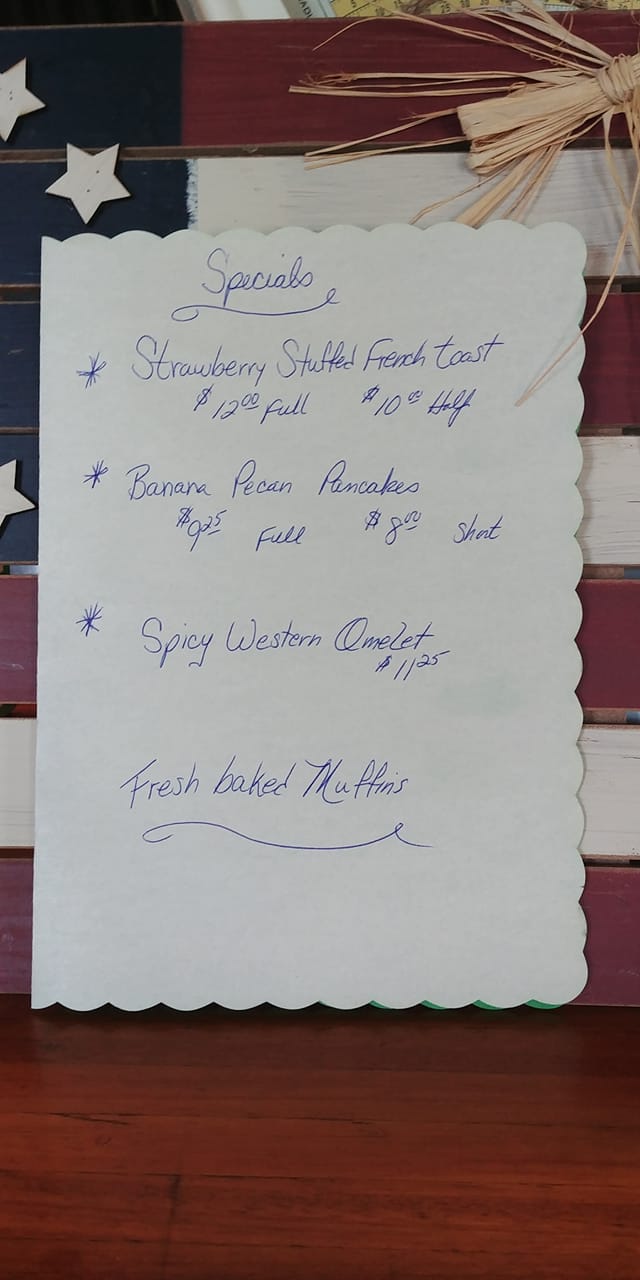 Specials
* Strawberry Stuffed French toast
$12.00 Full $10.00 Half
* Banana Pecan Pancakes
$9.25 Full $8.00 Short
* Spicy Western Omelet
$11.25
Fresh baked Muffins